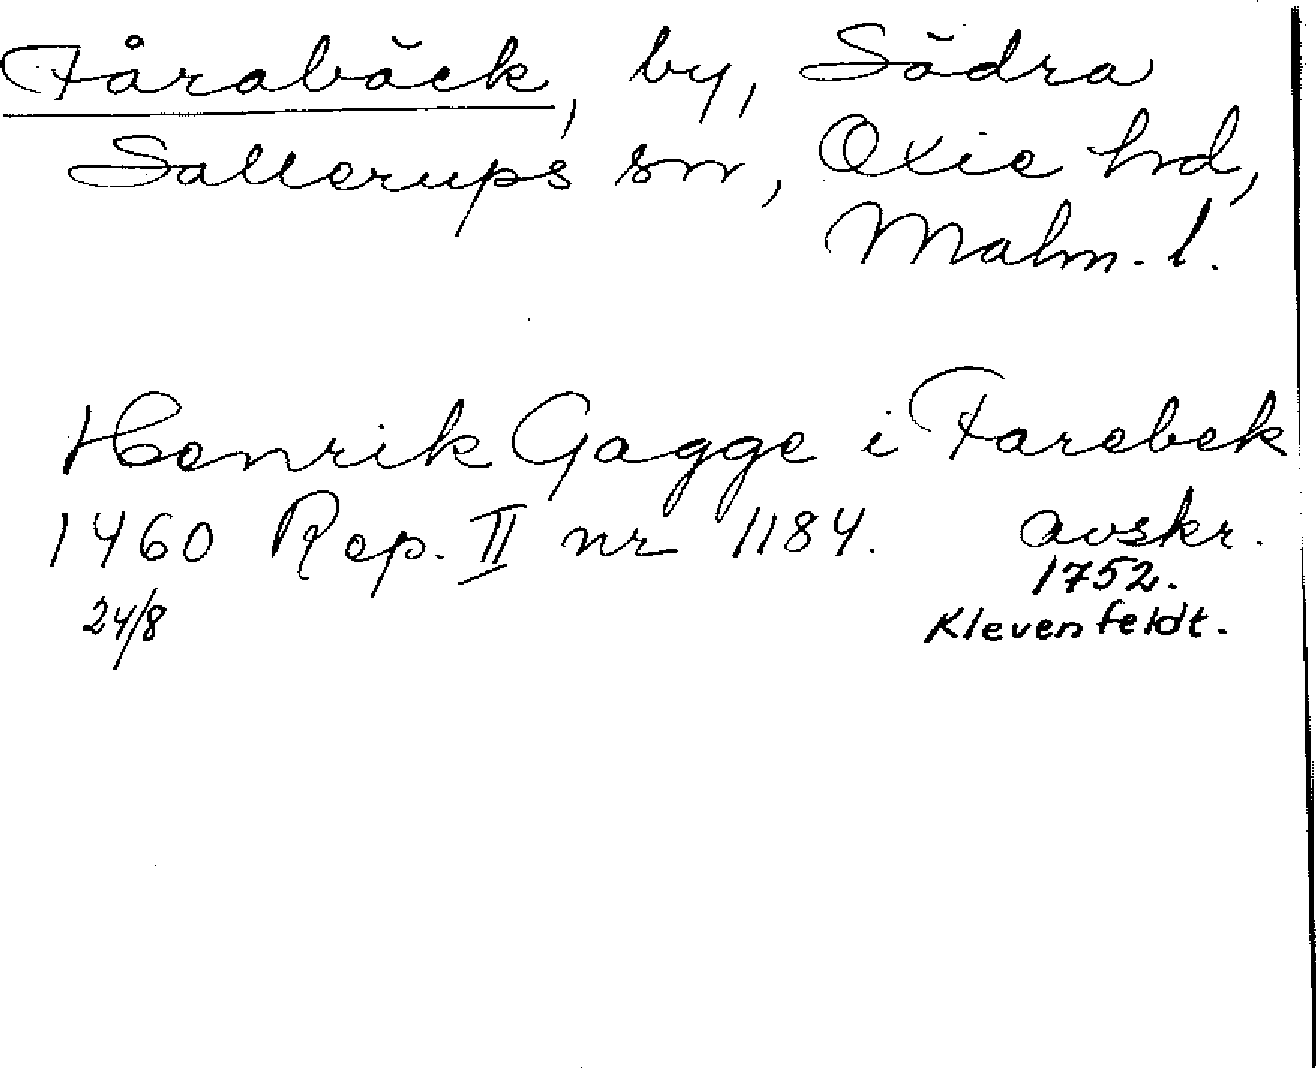 Fårabäck, by, Södra
Sallerups sn, Oxie hd,
Malm. l.
Henrik Gagge i Farebek
1460 Rep. II nr 1184. avskr.
24/8 1752.
Klevenfeldt.